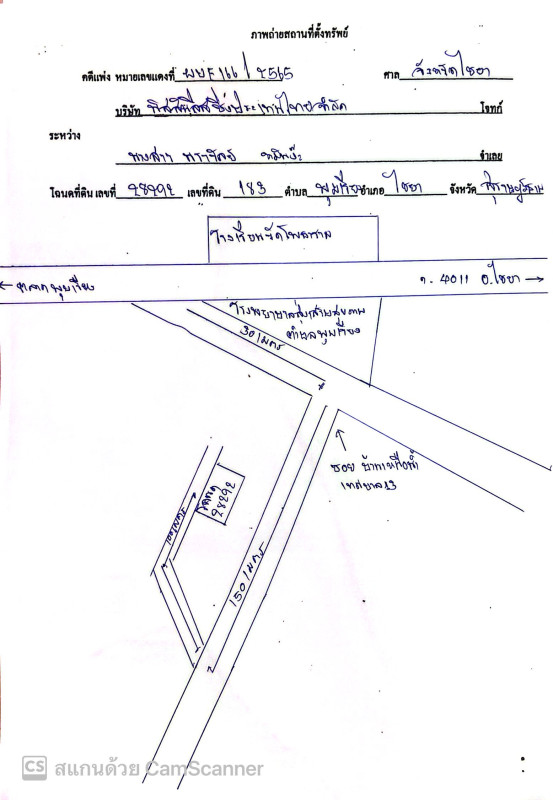 ภาพถ่ายสถานที่ตั้งทรัพย์
คดีแพ่ง หมายเลขแดงที่ ผบE166/2565 ศาล จังหวัดไชยา
บริษัท จำกัด โจทก์
ระหว่าง
นางสาว จำเลย
โฉนดที่ดิน เลขที่ 28292 เลขที่ดิน 183 ตำบล พุมเรียง อำเภอ ไชยา จังหวัด สุราษฎร์ธานี
โรงเรียนวัดโพธาราม
← ตลาดพุมเรียง
ถ. 4011 อ.ไชยา →
โรงพยาบาลส่งเสริมสุขภาพ
ตำบลพุมเรียง
30 เมตร
ซอย
เทศบาล 13
โฉนด
28292
100 เมตร
150 เมตร
CS สแกนด้วย CamScanner